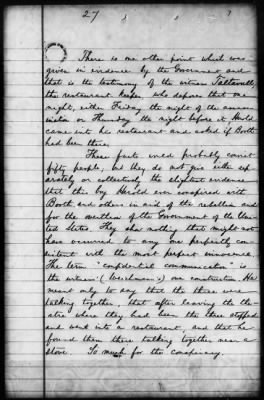 27
There is one other point which was
given in evidence by the Government and
that is the testimony of the witness Taltavull,
the restaurant keeper, who deposes that one
night, either Friday the night of the assas-
sination or Thursday the night before it Herold
came into his restaurant and asked if Booth
had been there.
These facts would probably convict
fifty people, but they do not give either sep
arately or collectively, the slightest evidence
that this boy Herold ever conspired with
Booth and others in aid of the rebellion and
for the overthrow of the Government of the Uni-
ted States. They show nothing that might not
have occurred to any one perfectly con-
sistent with the most perfect innocence.
The term "confidential communication" is
the witness' (Weichmann's) own construction. He
meant only to say that the three were
talking together, that after leaving the the-
atre where they had been the three stopped
and went into a restaurant, and that he
found them there talking together near a
stove. So much for the conspiracy.